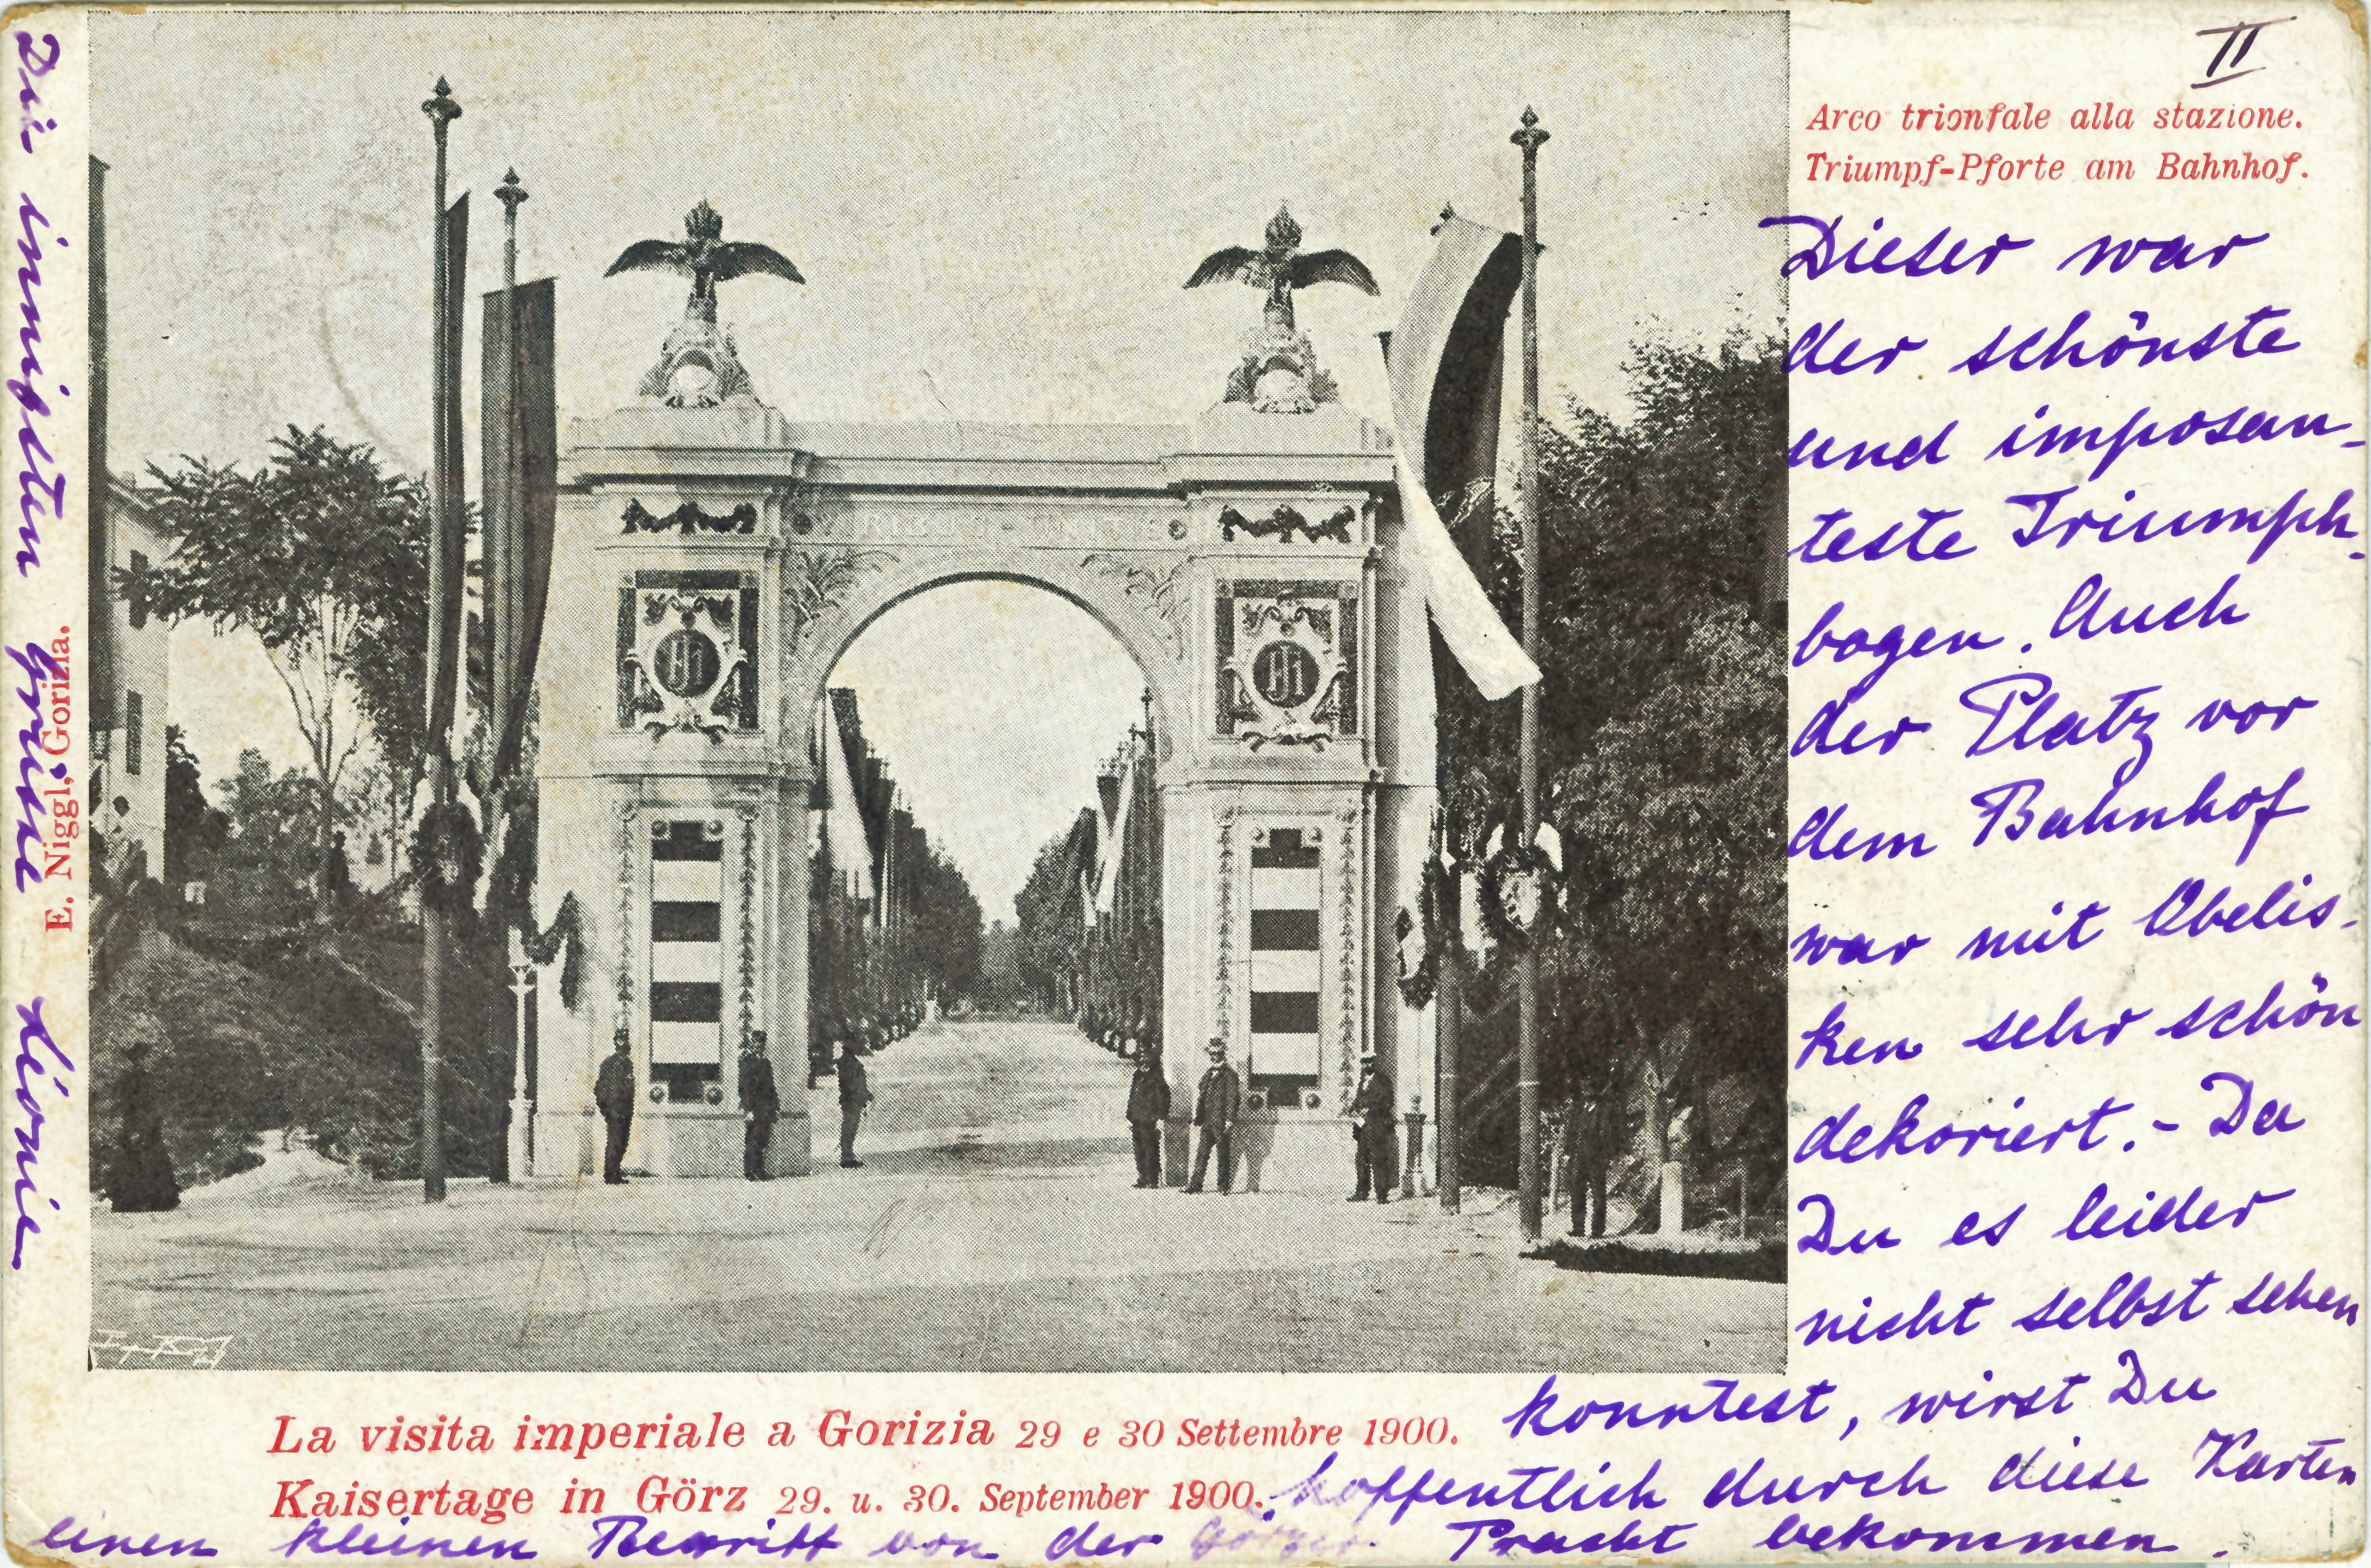 II
Arco trionfale alla stazione.
Triumpf-Pforte am Bahnhof.
Dieser war
der schönste
und imposan-
teste Triumph-
bogen. Auch
der Platz vor
dem Bahnhof
war mit Obelis-
ken sehr schön
dekoriert. - Da
Du es leider
nicht selbst sehen
konntest, wirst Du
hoffentlich durch diese Karten
einen kleinen Begriff von der Görzer Pracht bekommen.
La visita imperiale a Gorizia 29 e 30 Settembre 1900.
Kaisertage in Görz 29. u. 30. September 1900.
Die innigsten Grüsse Léonie
E. Niggl, Gorizia.